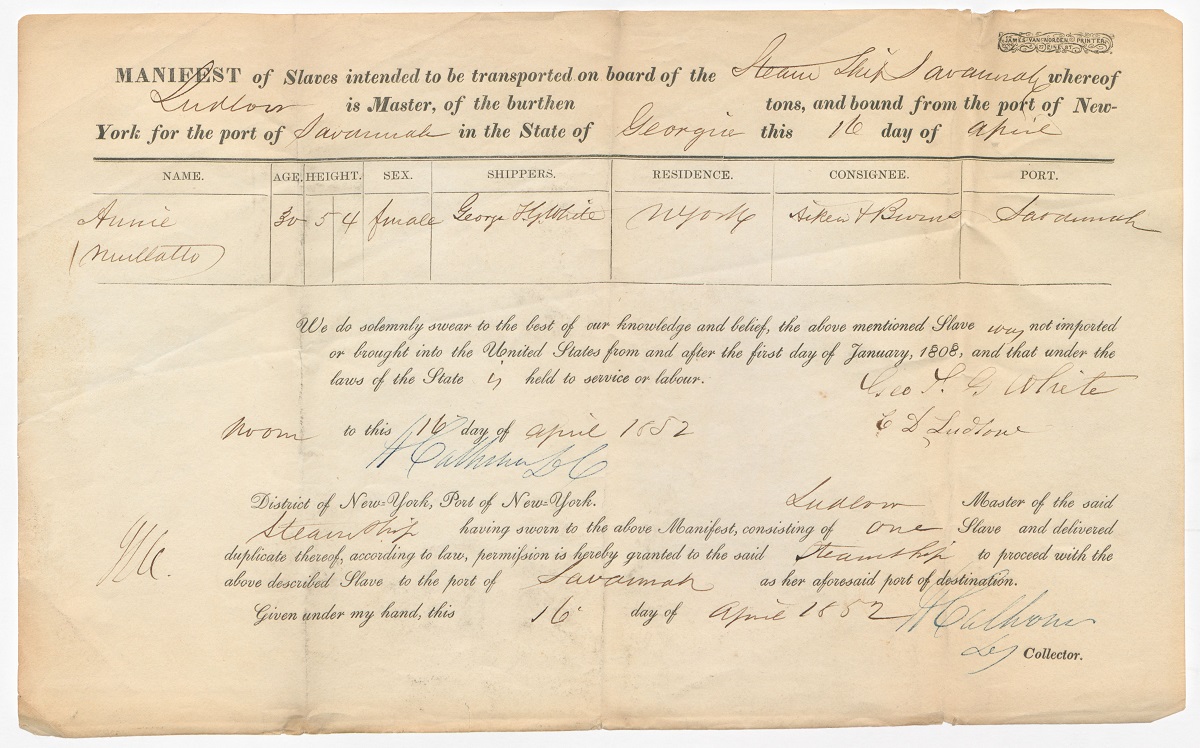 JAMES VAN NORDEN PRINTER
MANIFEST of Slaves intended to be transported on board of the Steam Ship Savannah whereof
Ludlow is Master, of the burthen tons, and bound from the port of New-
York for the port of Savannah in the State of Georgia this 16 day of April
NAME. AGE. HEIGHT. SEX. SHIPPERS. RESIDENCE. CONSIGNEE. PORT.
Annie 30 5 4 female George White NYork Aiken & Savannah
(Mullatto)
We do solemnly swear to the best of our knowledge and belief, the above mentioned Slave was not imported
or brought into the United States from and after the first day of January, 1808, and that under the
laws of the State is held to service or labour.
Geo F. G White
noom to this 16 day of april 1852
C D Ludlow
Calhoun
District of New-York, Port of New-York. Ludlow Master of the said
Steamship having sworn to the above Manifest, consisting of one Slave and delivered
duplicate thereof, according to law, permission is hereby granted to the said Steamship to proceed with the
above described Slave to the port of Savannah as her aforesaid port of destination.
Given under my hand, this 16 day of april 1852 Calhoun
Collector.